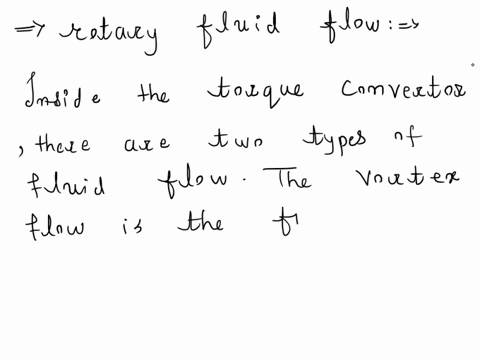 => rotary fluid flow :=>
Inside the torque convertor
, there are two types of
fluid flow. The vortex
flow is the f